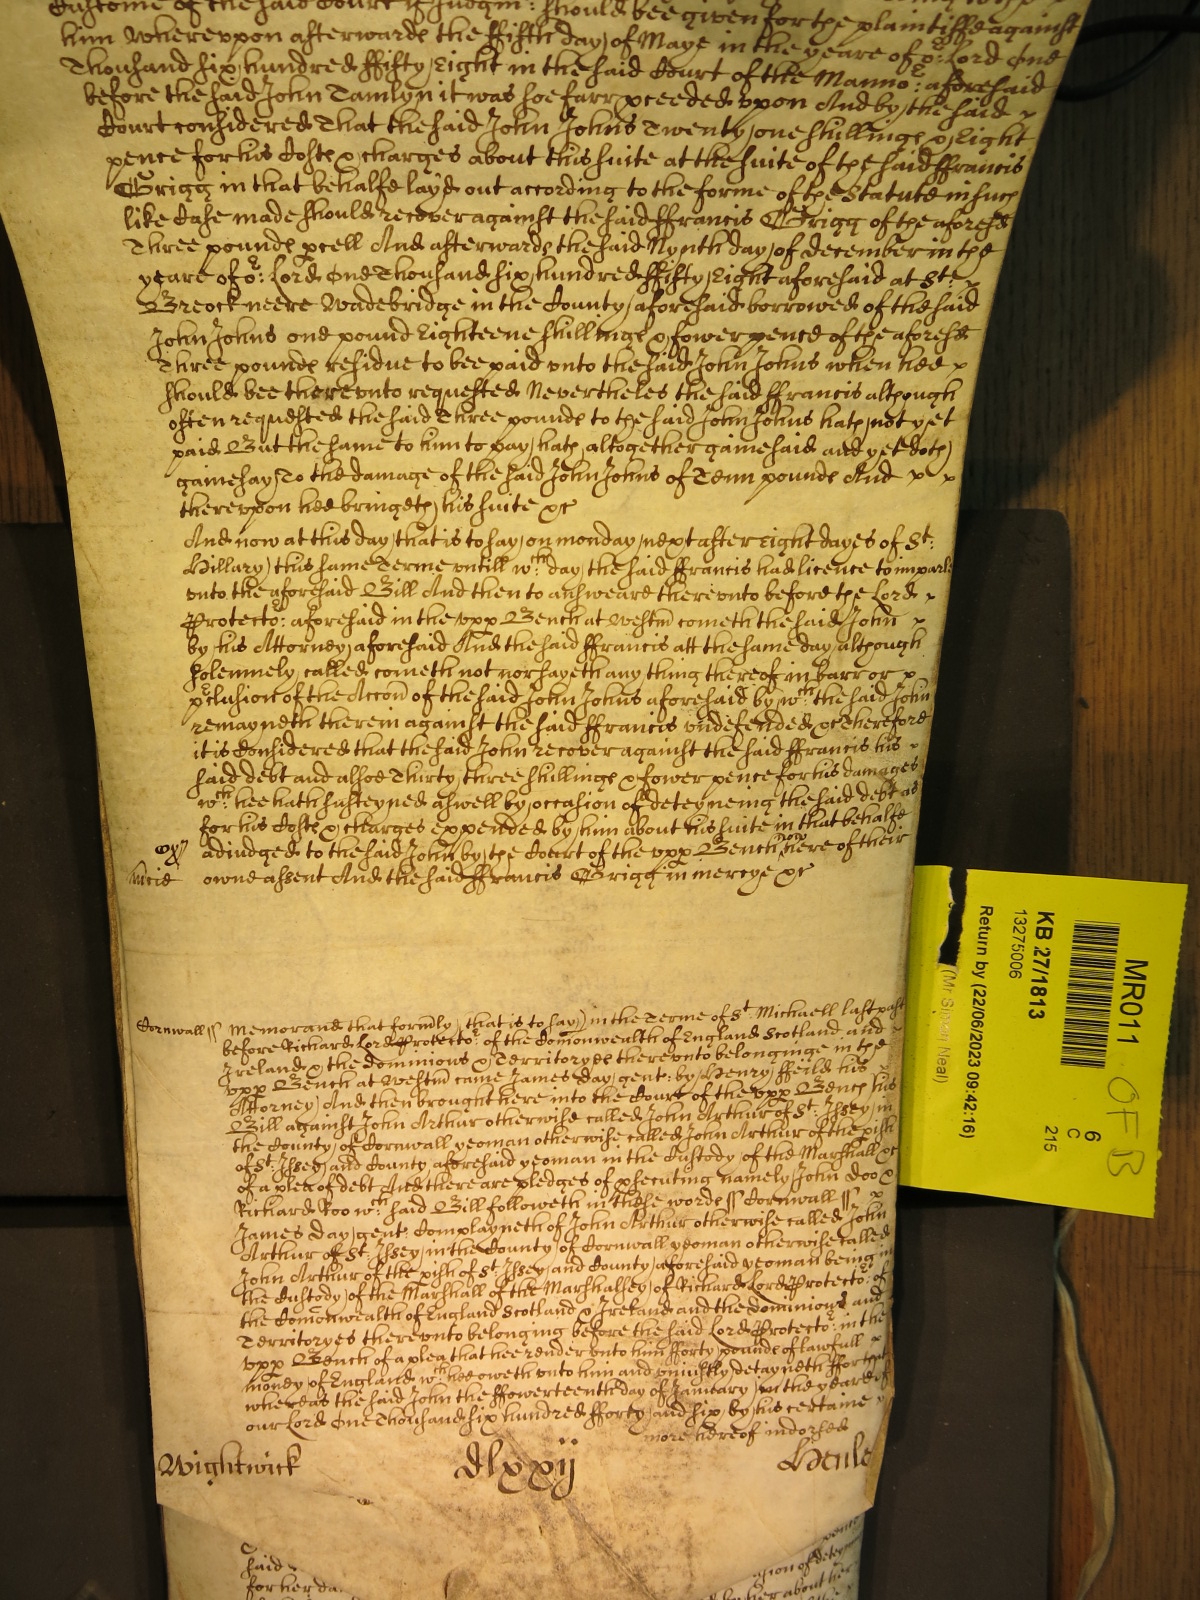 Custome of the said Court if Judgm: should bee given for the plaintiffe against
him Wherevpon afterwards the ffifth day of Maye in the yeare of or: Lord One
Thousand six hundred ffifty Eight in the said Court of the Manno:r aforesaid
before the said John Tamlyn it was soe farr pceeded vpon And by the said
Court considered That the said John Johns Twenty one shillings & Eight
pence for his Costs & charges about this suite at the suite of the said ffrancis
Grigg in that behalfe layd out according to the forme of the Statute in such
like Case made should recover against the said ffrancis Grigg of the aforesd
Three pounds pcell And afterwards the said Nynth day of December in the
yeare of or: Lord One Thousand six hundred ffifty Eight aforesaid at St:
Breock neere Wadebridge in the County aforesaid borrowed of the said
John Johns one pound Eighteene shillings & fower pence of the aforesd
Three pounds residue to bee paid vnto the said John Johns when hee
should bee therevnto requested Nevertheles the said ffrancis although
often requested the said Three pounds to the said John Johns hath not yet
paid But the same to him to pay hath altogether gainesaid and yet doth
gainesay To the damage of the said John Johns of Tenn pounds And
therevpon hee bringeth his suite &c
And now at this day that is to say on monday next after Eight dayes of St:
Hillary this same Terme vntill wch: day the said ffrancis had licence to imparle
vnto the aforesaid Bill And then to answeare therevnto before the Lord
Protector: aforesaid in the vpp Bench at Westm cometh the said John
by his Attorney aforesaid And the said ffrancis att the same day although
solemnely called cometh not nor sayeth any thing thereof in barr or
pclusion of the Accon of the said John Johns aforesaid by wch: the said John
remayneth therein against the said ffrancis vndefended &c Therefore
it is Considered that the said John recover against the said ffrancis his
said debt and alsoe Thirty three shillings & fower pence for his damages
wch: hee hath susteyned aswell by occasion of deteyneing the said debt as
for his Costs & charges expended by him about his suite in that behalfe
adiudged to the said John by the Court of the vpp Bench now here of their
mcie owne assent And the said ffrancis Grigg in mercye &c
Cornwall ss Memorand that formly that is to say in the Terme of St: Michaell last past
before Richard Lord Protector: of the Comonwealth of England Scotland and
Ireland & the dominions & Territoryes therevnto belonginge in the
vpp Bench at Westm came James day gent: by Henry ffeild his
Attorney And then brought here into the Court of the vpp Bench his
Bill against John Arthur otherwise called John Arthur of St: Issey in
the County of Cornwall yeoman otherwise called John Arthur of the pish
of St: Issey and County aforesaid yeoman in the Custody of the Marshall &c
of a plea of debt And there are pledges of psecuting namely John Doo &
Richard Roo wch: said Bill followeth in these words ss Cornwall ss
James day gent: Complayneth of John Arthur otherwise called John
Arthur of St: Issey in the County of Cornwall yeoman otherwise called
John Arthur of the pish of St: Issey and County aforesaid yeoman being in
the Custody of the Marshall of the Marshallsey of Richard Lord Protector: of
the Comonwealth of England Scotland & Ireland and the dominions and
Territoryes therevnto belonging before the said Lord Protector: in the
vpp Bench of a plea that hee render vnto him fforty pounds of lawfull
money of England wch: hee oweth vnto him and vniustly detayneth ffor that
whereas the said John the ffowerteenth day of January in the yeare of
our Lord One Thousand six hundred fforty and six by his certaine
more hereof indorsed
Wightwick dlxxij Henle
said
for her da
sion of deteyn
about her
MR011
OFB
KB 27/1813
13275006
6
C
215
Return by (22/06/2023 09:42:16)
(Mr Simon Neal)